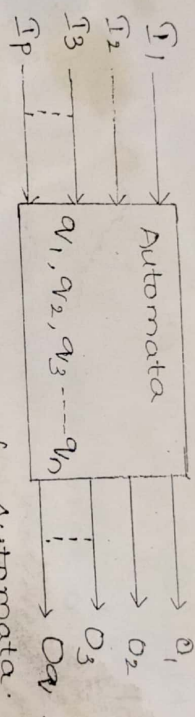 I1
I2
I3
Ip
Automata
q1, q2, q3 ----- qn
O1
O2
O3
Oq
Automata.